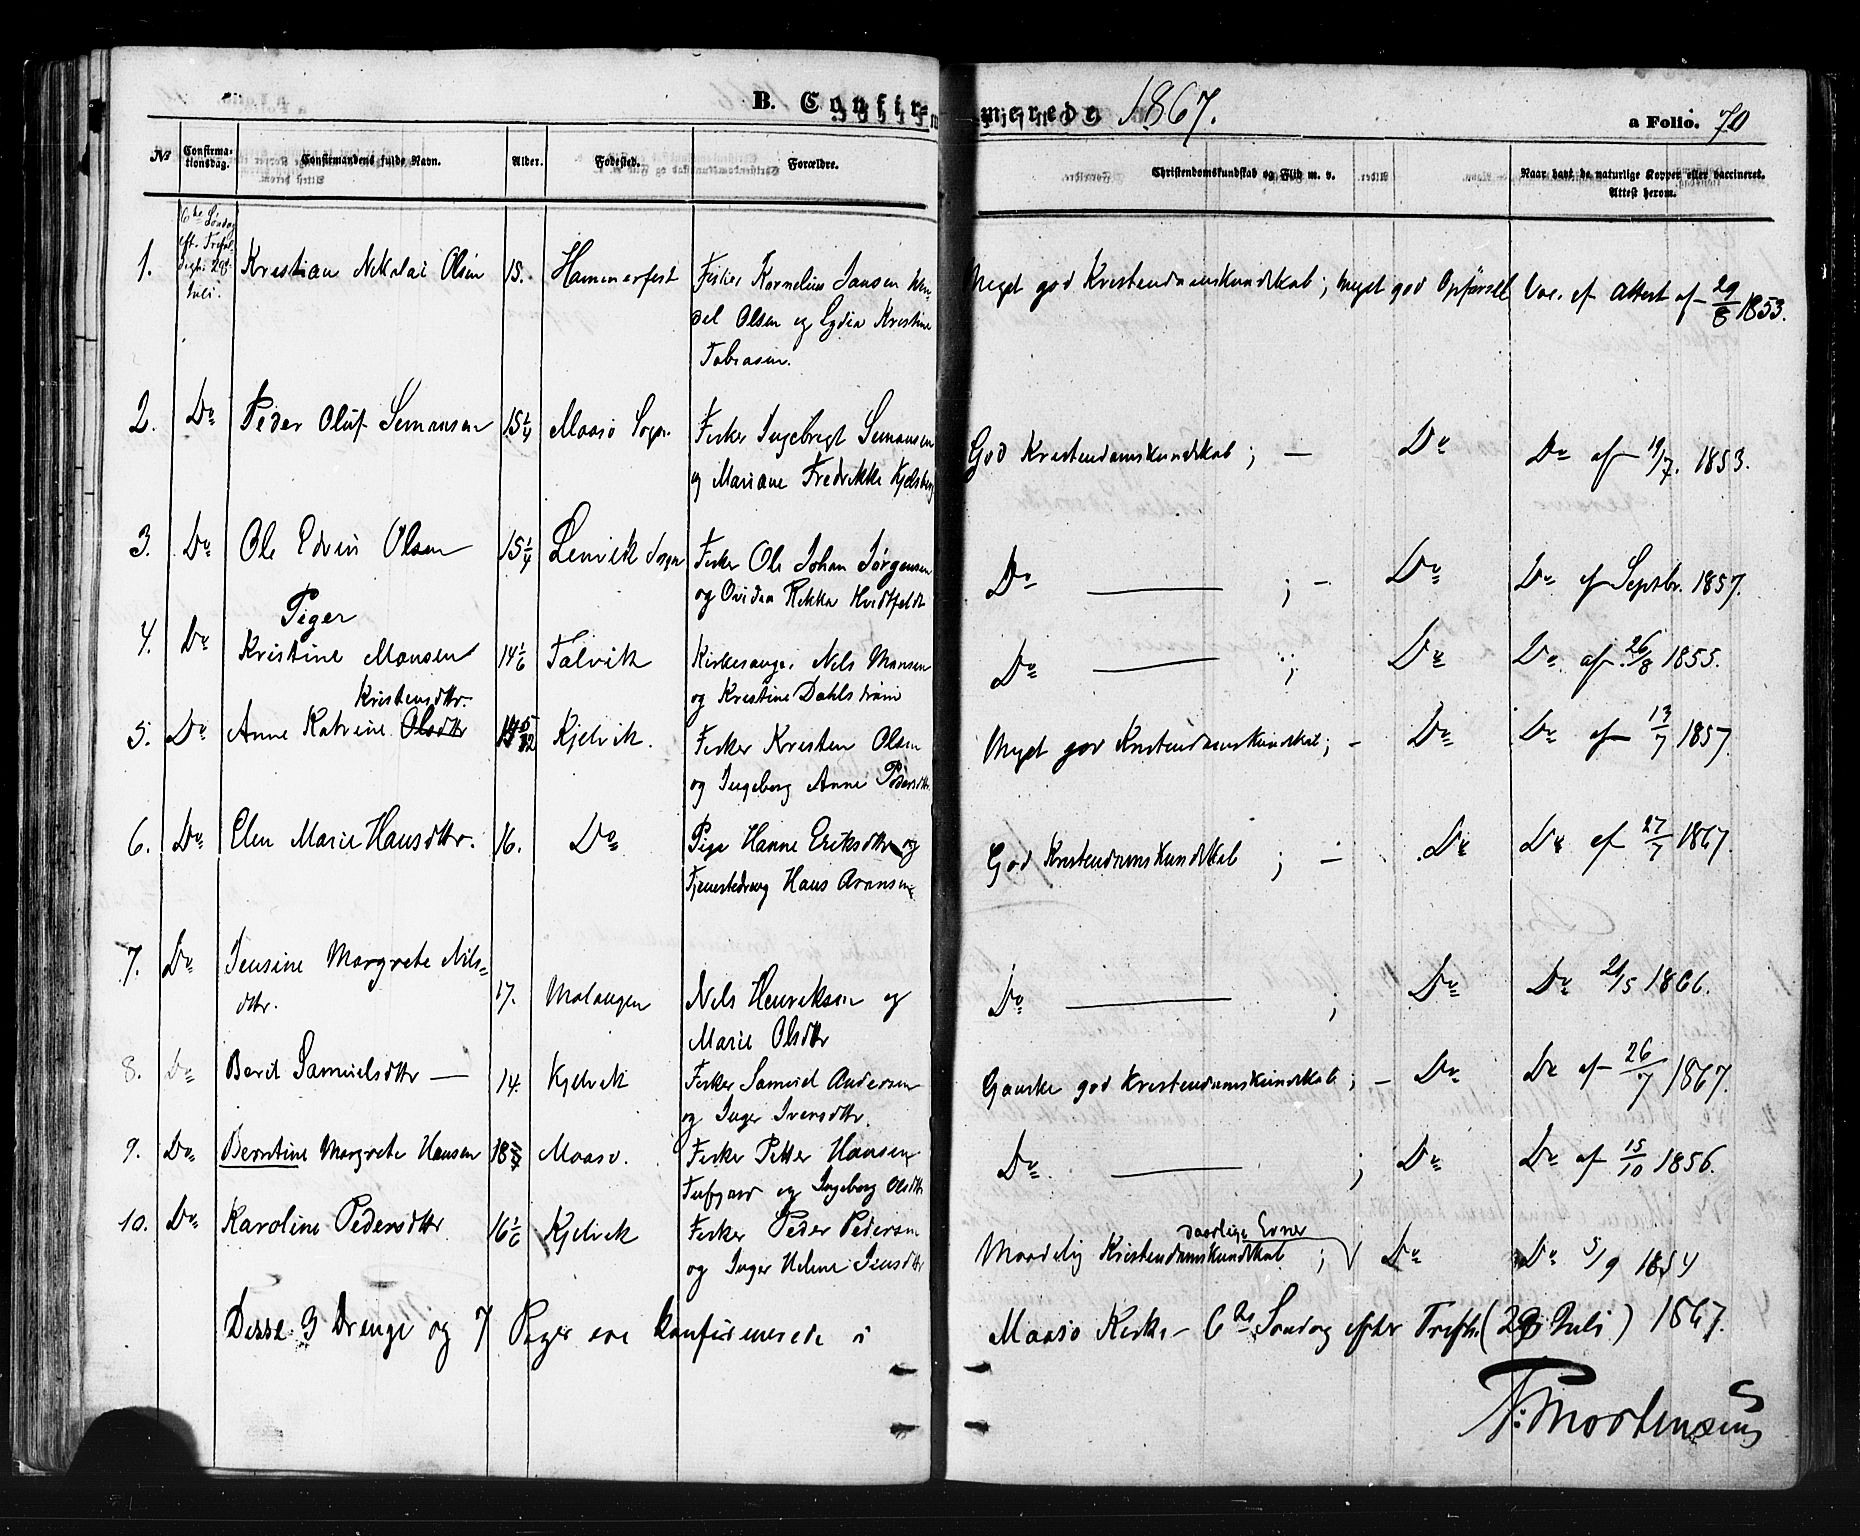 B. Confirmerede 1867.
a Folio. 70
No
Confirmationsdag.
Confirmandens fulde Navn.
Alder.
Fødested.
Forældre.
Christendomskundskab og Flid m. v.
Naar havt de naturlige Kopper eller vaccineret. Attest herom.
6te Søndag
eft. Trefol-
digh. 28d
Juli.
1. Kristian Nikolai Olsen 15. Hammerfest Fisker Kornelius Jansen
Olsen og Lydia Kristine
Tobiasen.
Meget god Kristendomskundskab; meget god Opførsell Vac. ef Attest af 29/8 1853.
2. Do Peder Oluf Simonsen 15 1/4 Maasø Sogn. Fisker Ingebrigt Simonsen
og Mariane Fredrikke Kjelsberg
God Kristendomskundskab; — Do Do af 19/7. 1853.
3. Do Ole Edvin Olsen 15 1/4 Lenvik Sogn Fisker Ole Johan Jørgensen
og Ovidia Rikka Hvidtfeldt
Do ; — Do Do af Septbr. 1857.
Piger
4. Do Kristine Monsen 14 1/6 Talvik Kirkesanger Nils Monsen
og Kristine Dahlstrøm
Do ; Do Do af 26/8 1855.
Kristensdttr.
5. Do Anne Katrine Olsdttr Kjelvik. Fisker Kristen Olsen
og Ingeborg Anne Pedersdttr.
Meget god Kristendomskundskab; — Do Do af 13/7 1857.
6. Do Elen Marie Hansdttr. 16. Do Pige Hanne Eriksdttr og
Tjenestedreng Hans Aronsen
God Kristendomskundskab ; — Do Do af 27/7 1867
7. Do Jensine Margrete Nils-
dttr. 17. Malangen Nils Henriksen og
Marie Olsdttr
Do ; Do Do 21/5 1866.
8. Do Berit Samuelsdttr — 14. Kjelvik Fisker Samuel Andersen
og Inger Iversdttr.
Ganske god Kristendomskundskab; — Do Do af 26/7 1867.
9. Do Berntine Margrete Hansen 18 Maasø. Fisker Petter Hansen
Tufjord og Ingeborg Olsdttr
Do. ; Do Do af 15/10 1856.
10. Do Karoline Pedersdttr 16 1/6 Kjelvik Fisker Peder Pedersen
og Inger Helene Jensdttr
daarlige Evner
Maadelig Kristendomskundskab ; Do Do 5/9 1854
Disse 3 Drenge og 7 Piger ere konfirmerede i Maasø Kirke 6te Søndag efter Trefh. (28 Juli) 1867.
Mortensen